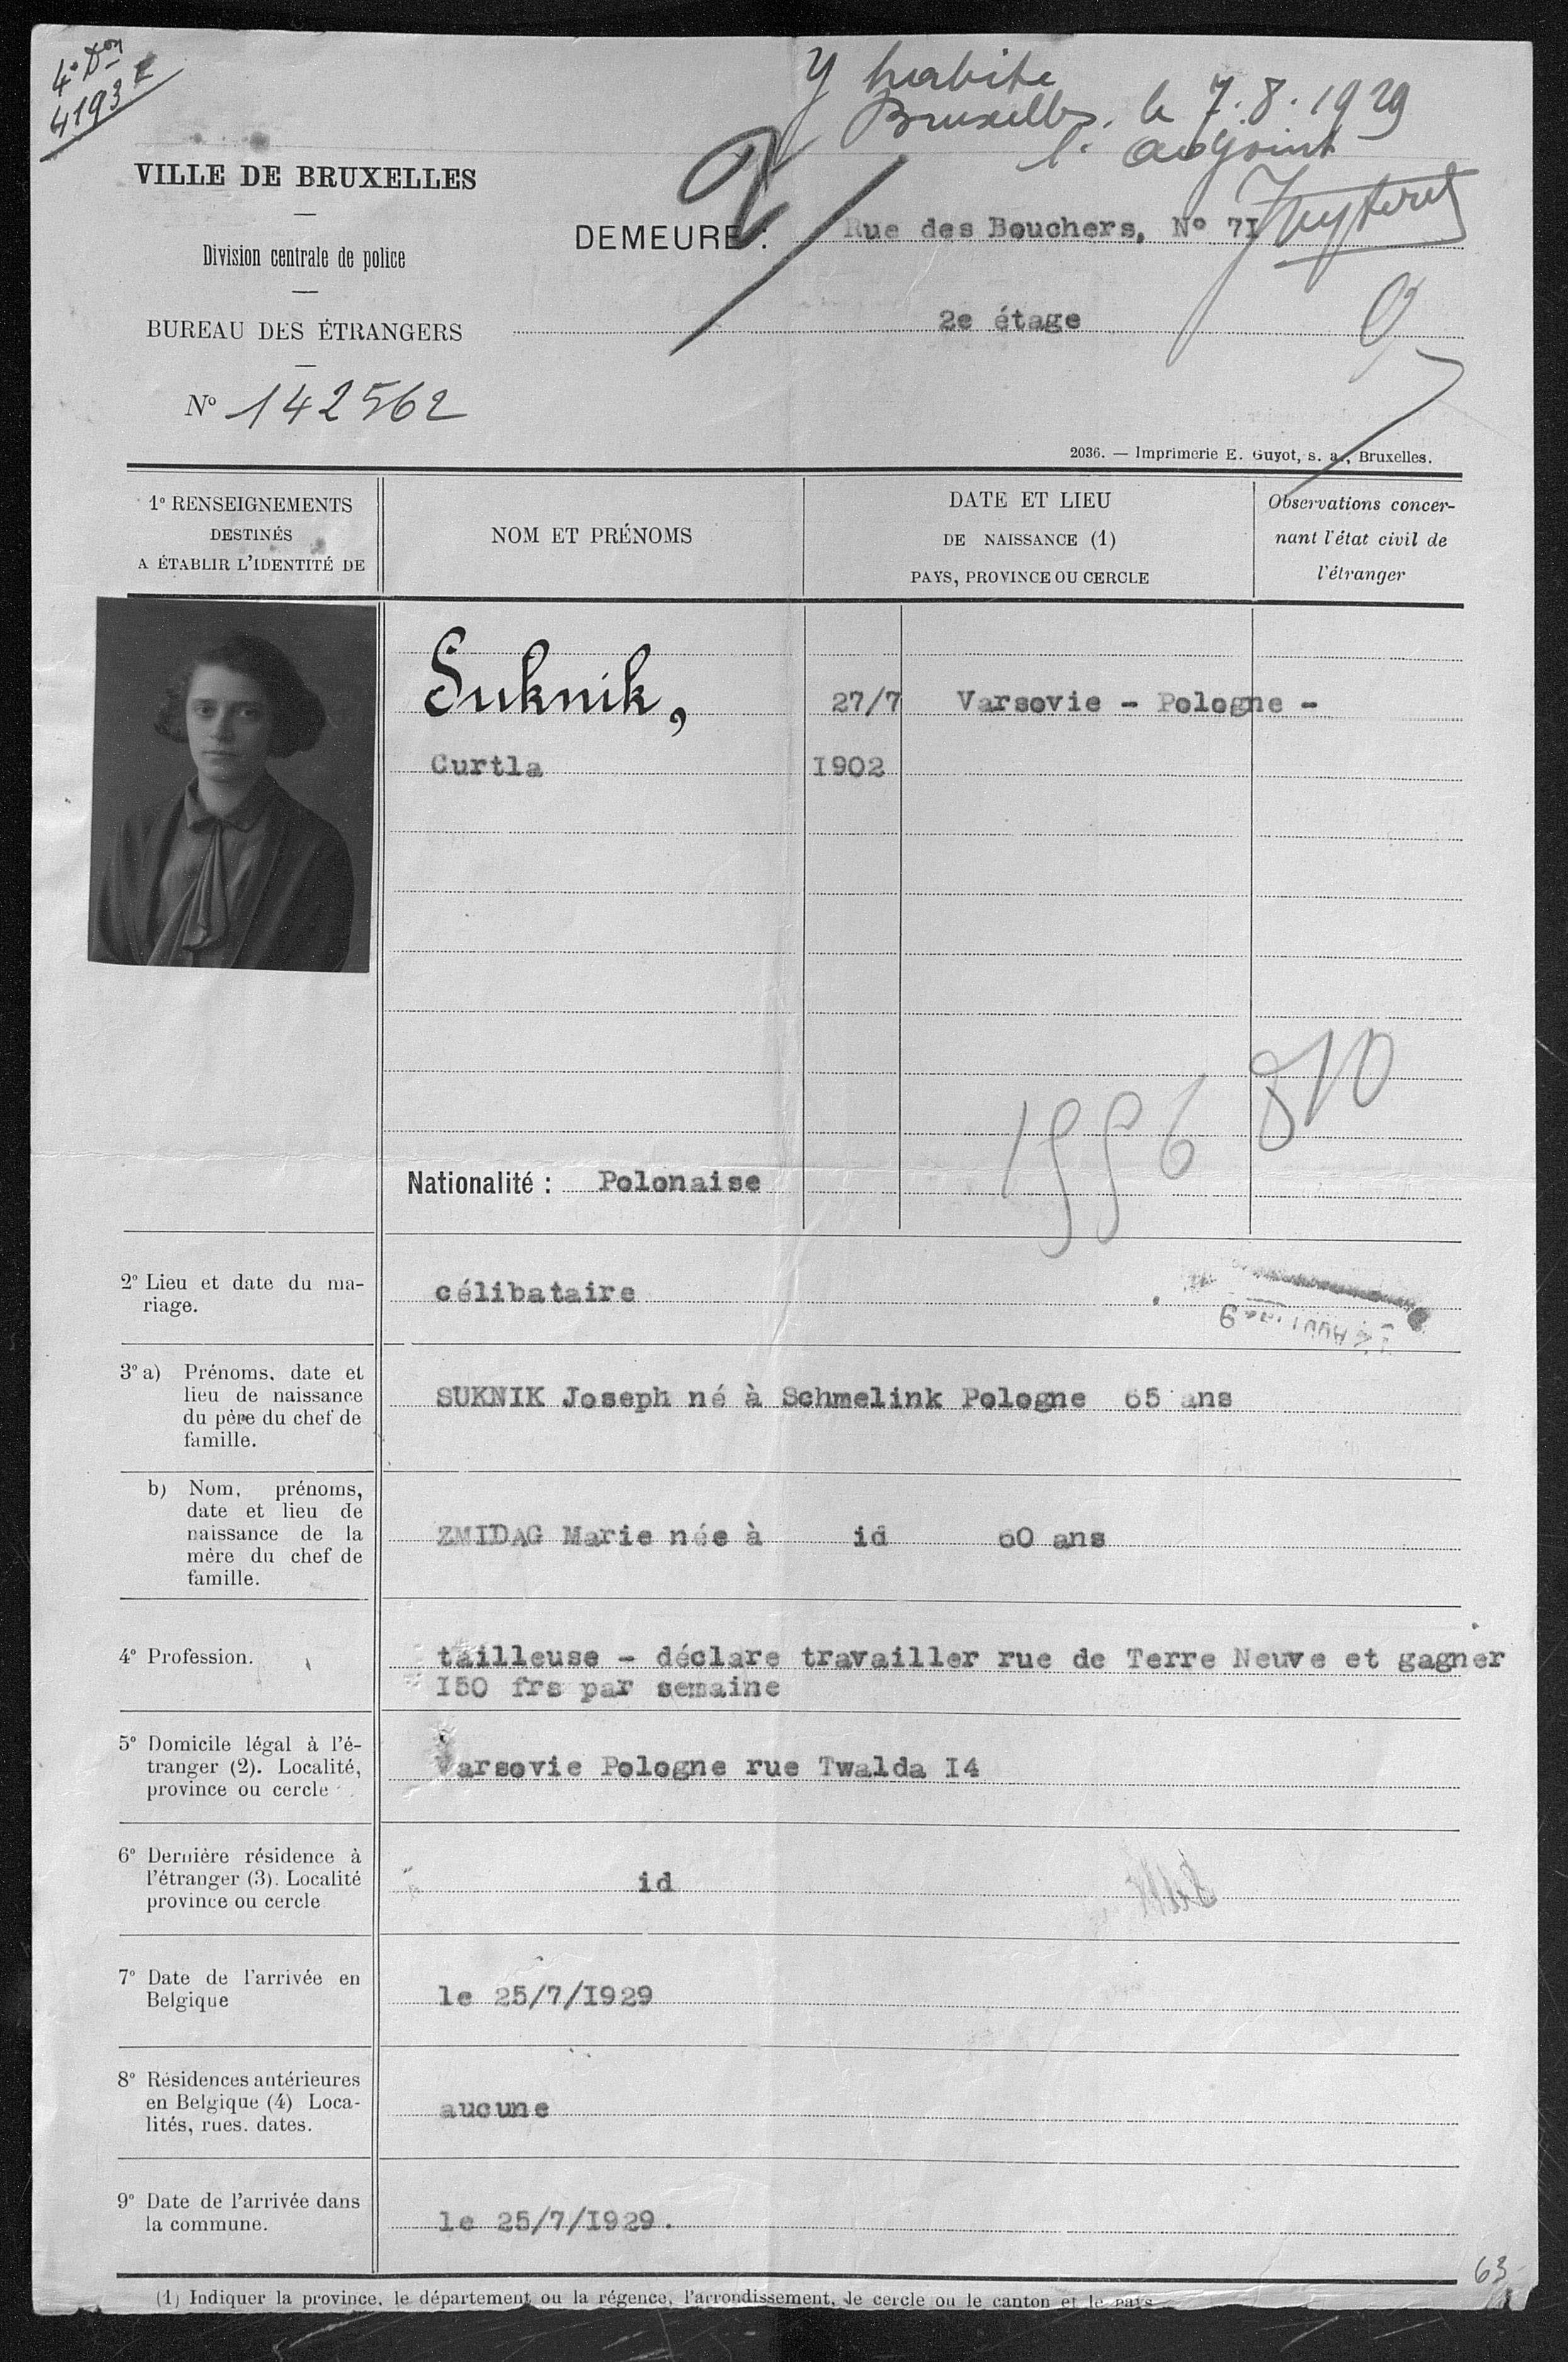 4e Don
4193 E
Y habite
Bruxelles, le 7.8.1929
l' adjoint
VILLE DE BRUXELLES
Division centrale de police
BUREAU DES ÉTRANGERS
No 142562
DEMEURE : Rue des Bouchers, No 7I
2e étage
2036. — Imprimerie E. Guyot, s. a., Bruxelles.
1o RENSEIGNEMENTS
DESTINÉS
A ÉTABLIR L'IDENTITÉ DE
NOM ET PRÉNOMS
DATE ET LIEU
DE NAISSANCE (1)
PAYS, PROVINCE OU CERCLE
Observations concer-
nant l'état civil de
l'étranger
Suknik, 27/7 Varsovie - Pologne -
Curtla I902
810
Nationalité : Polonaise
2o Lieu et date du ma-
riage.
célibataire
3o a) Prénoms, date et
lieu de naissance
du père du chef de
famille.
SUKNIK Joseph né à Schmelink Pologne 65 ans
b) Nom, prénoms,
date et lieu de
naissance de la
mère du chef de
famille.
ZMIDAG Marie née à id 60 ans
4o Profession.
tailleuse - déclare travailler rue de Terre Neuve et gagner
I50 frs par semaine
5o Domicile légal à l'é-
tranger (2). Localité,
province ou cercle
Varsovie Pologne rue Twalda I4
6o Dernière résidence à
l'étranger (3). Localité
province ou cercle
id
7o Date de l'arrivée en
Belgique
le 25/7/I929
8o Résidences antérieures
en Belgique (4) Loca-
lités, rues. dates.
aucune
9o Date de l'arrivée dans
la commune.
le 25/7/I929.
63
(1) Indiquer la province, le département ou la régence, l'arrondissement, le cercle ou le canton et le pays